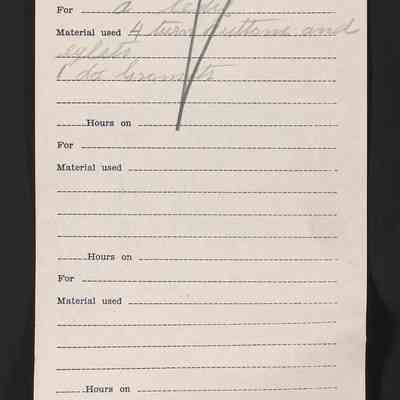 For a
Material used 4 turn buttons and
eylets
1 do Gromets
Hours on
For
Material used
Hours on
For
Material used
Hours on